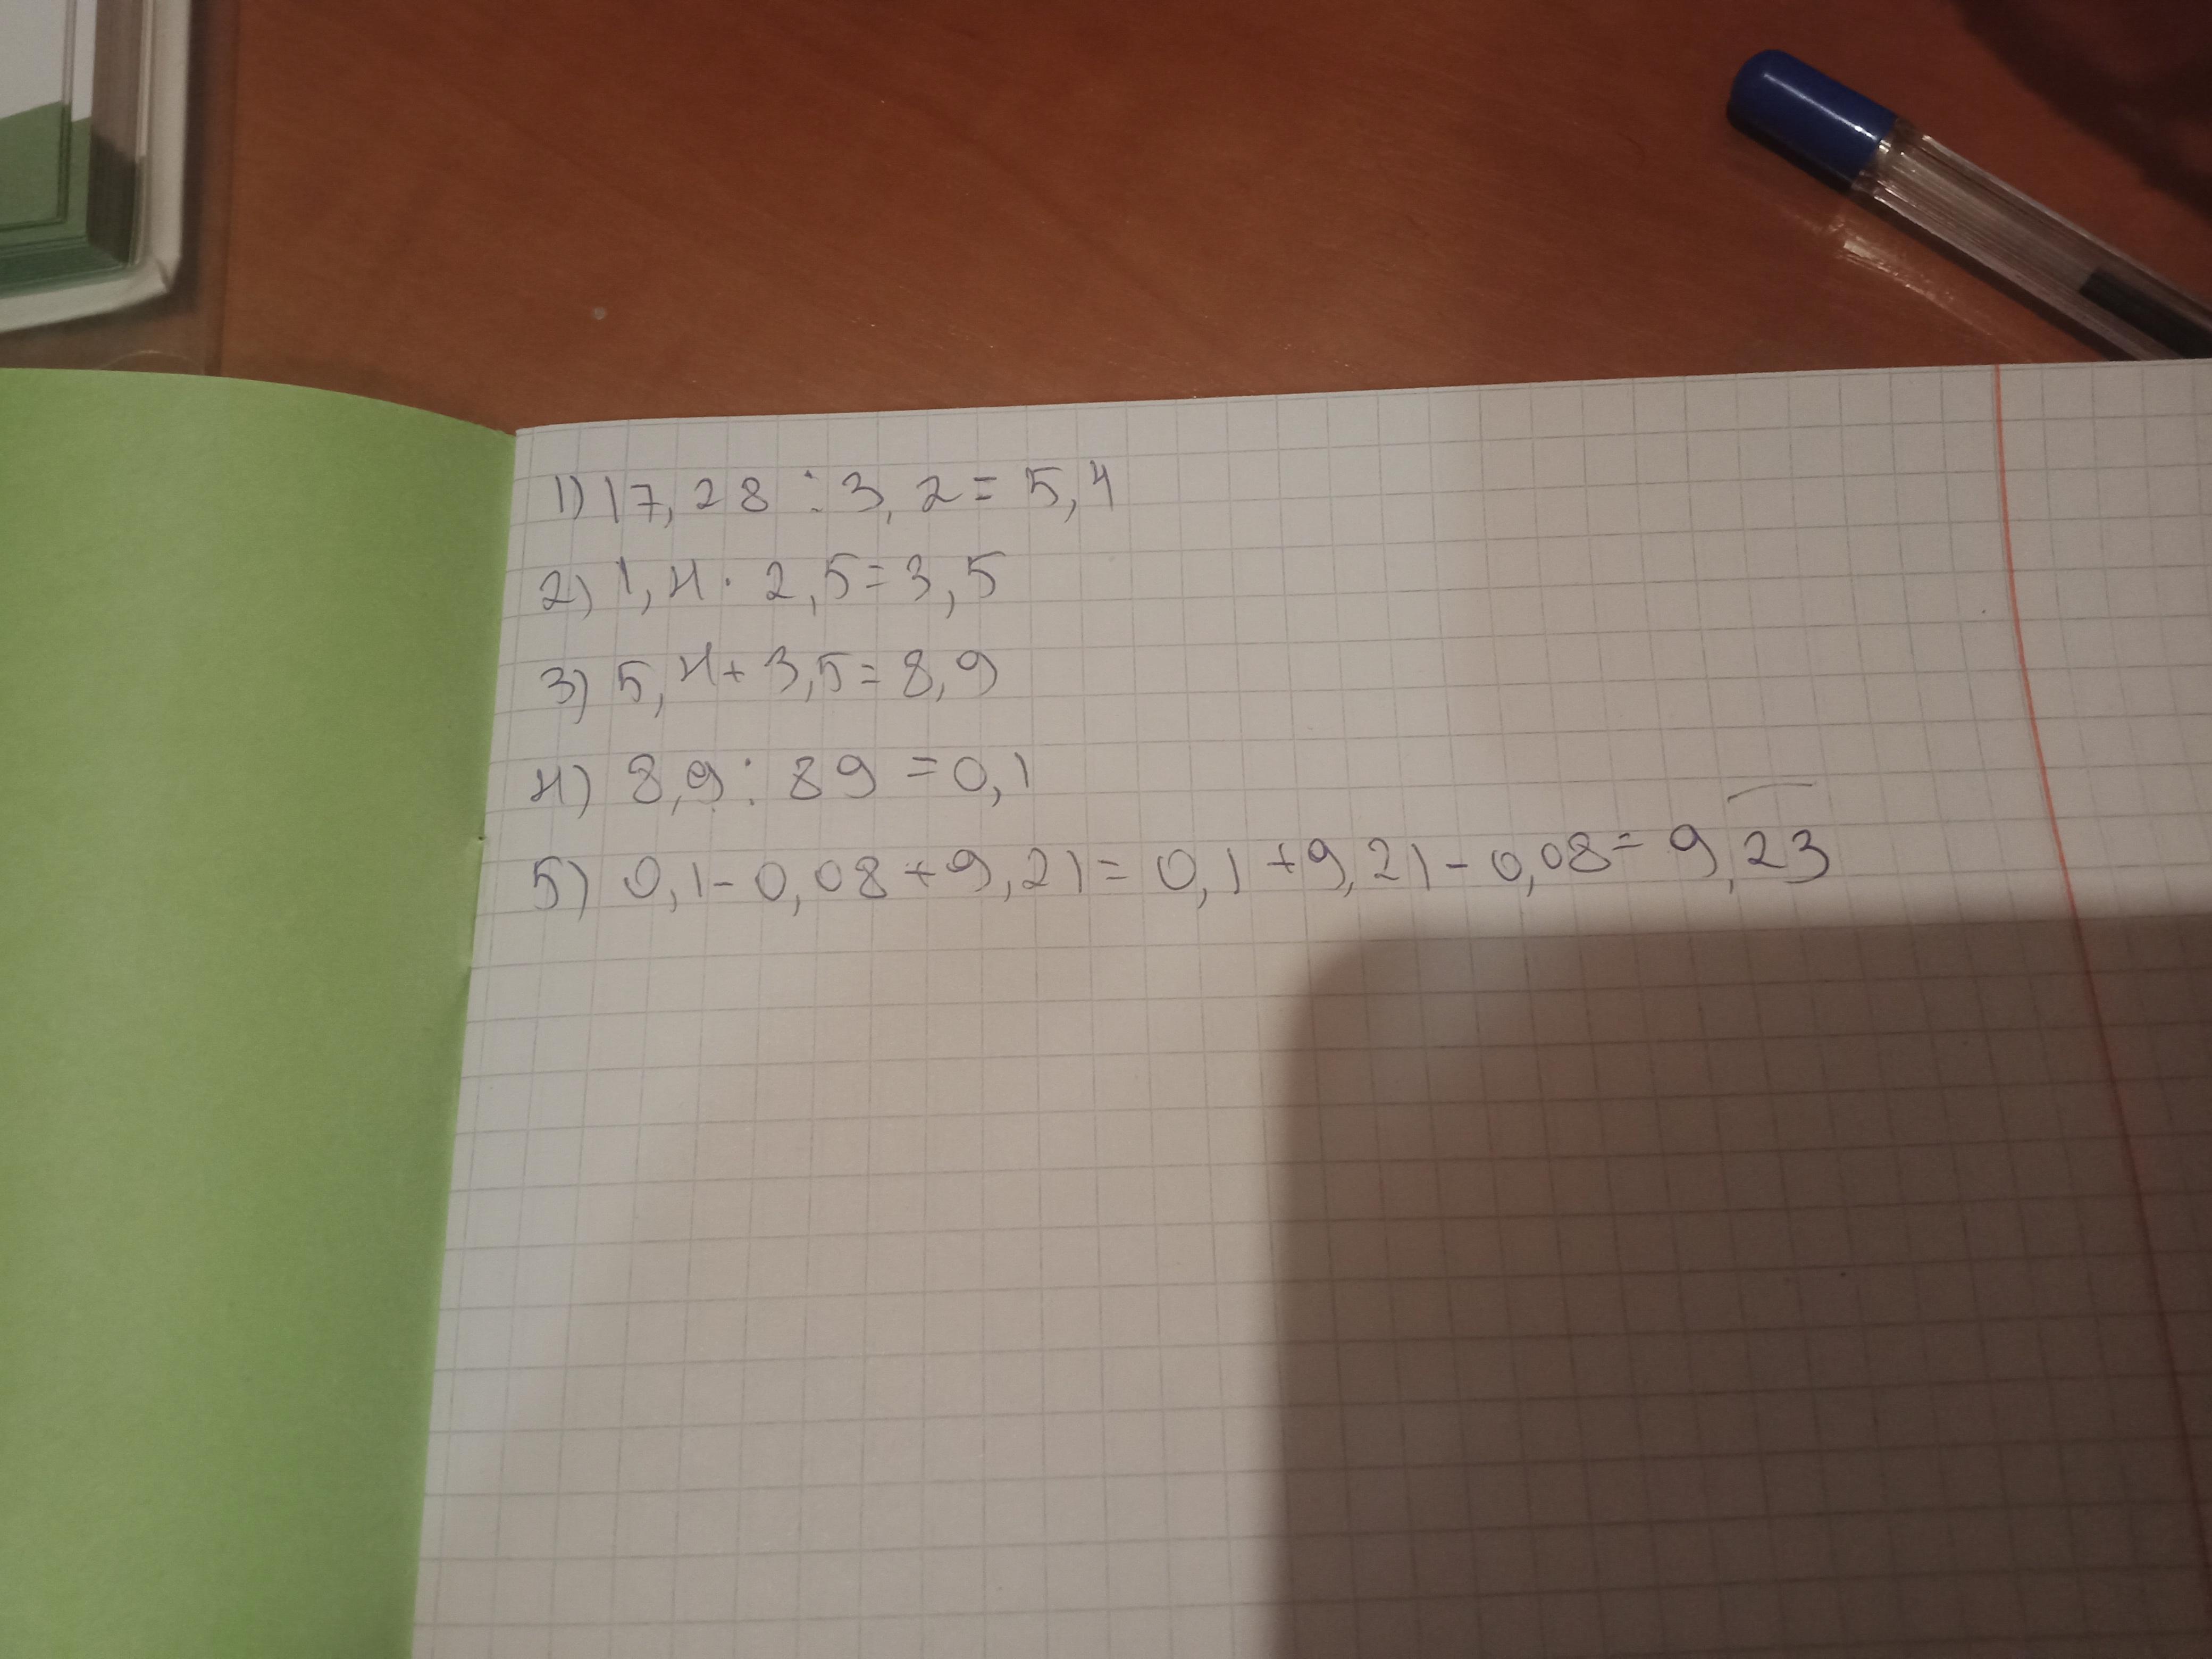 1) 17,28 : 3,2 = 5,4
2) 1,4 · 2,5 = 3,5
3) 5,4 + 3,5 = 8,9
4) 8,9 : 89 = 0,1
5) 0,1 - 0,08 + 9,21 = 0,1 + 9,21 - 0,08 = 9,23